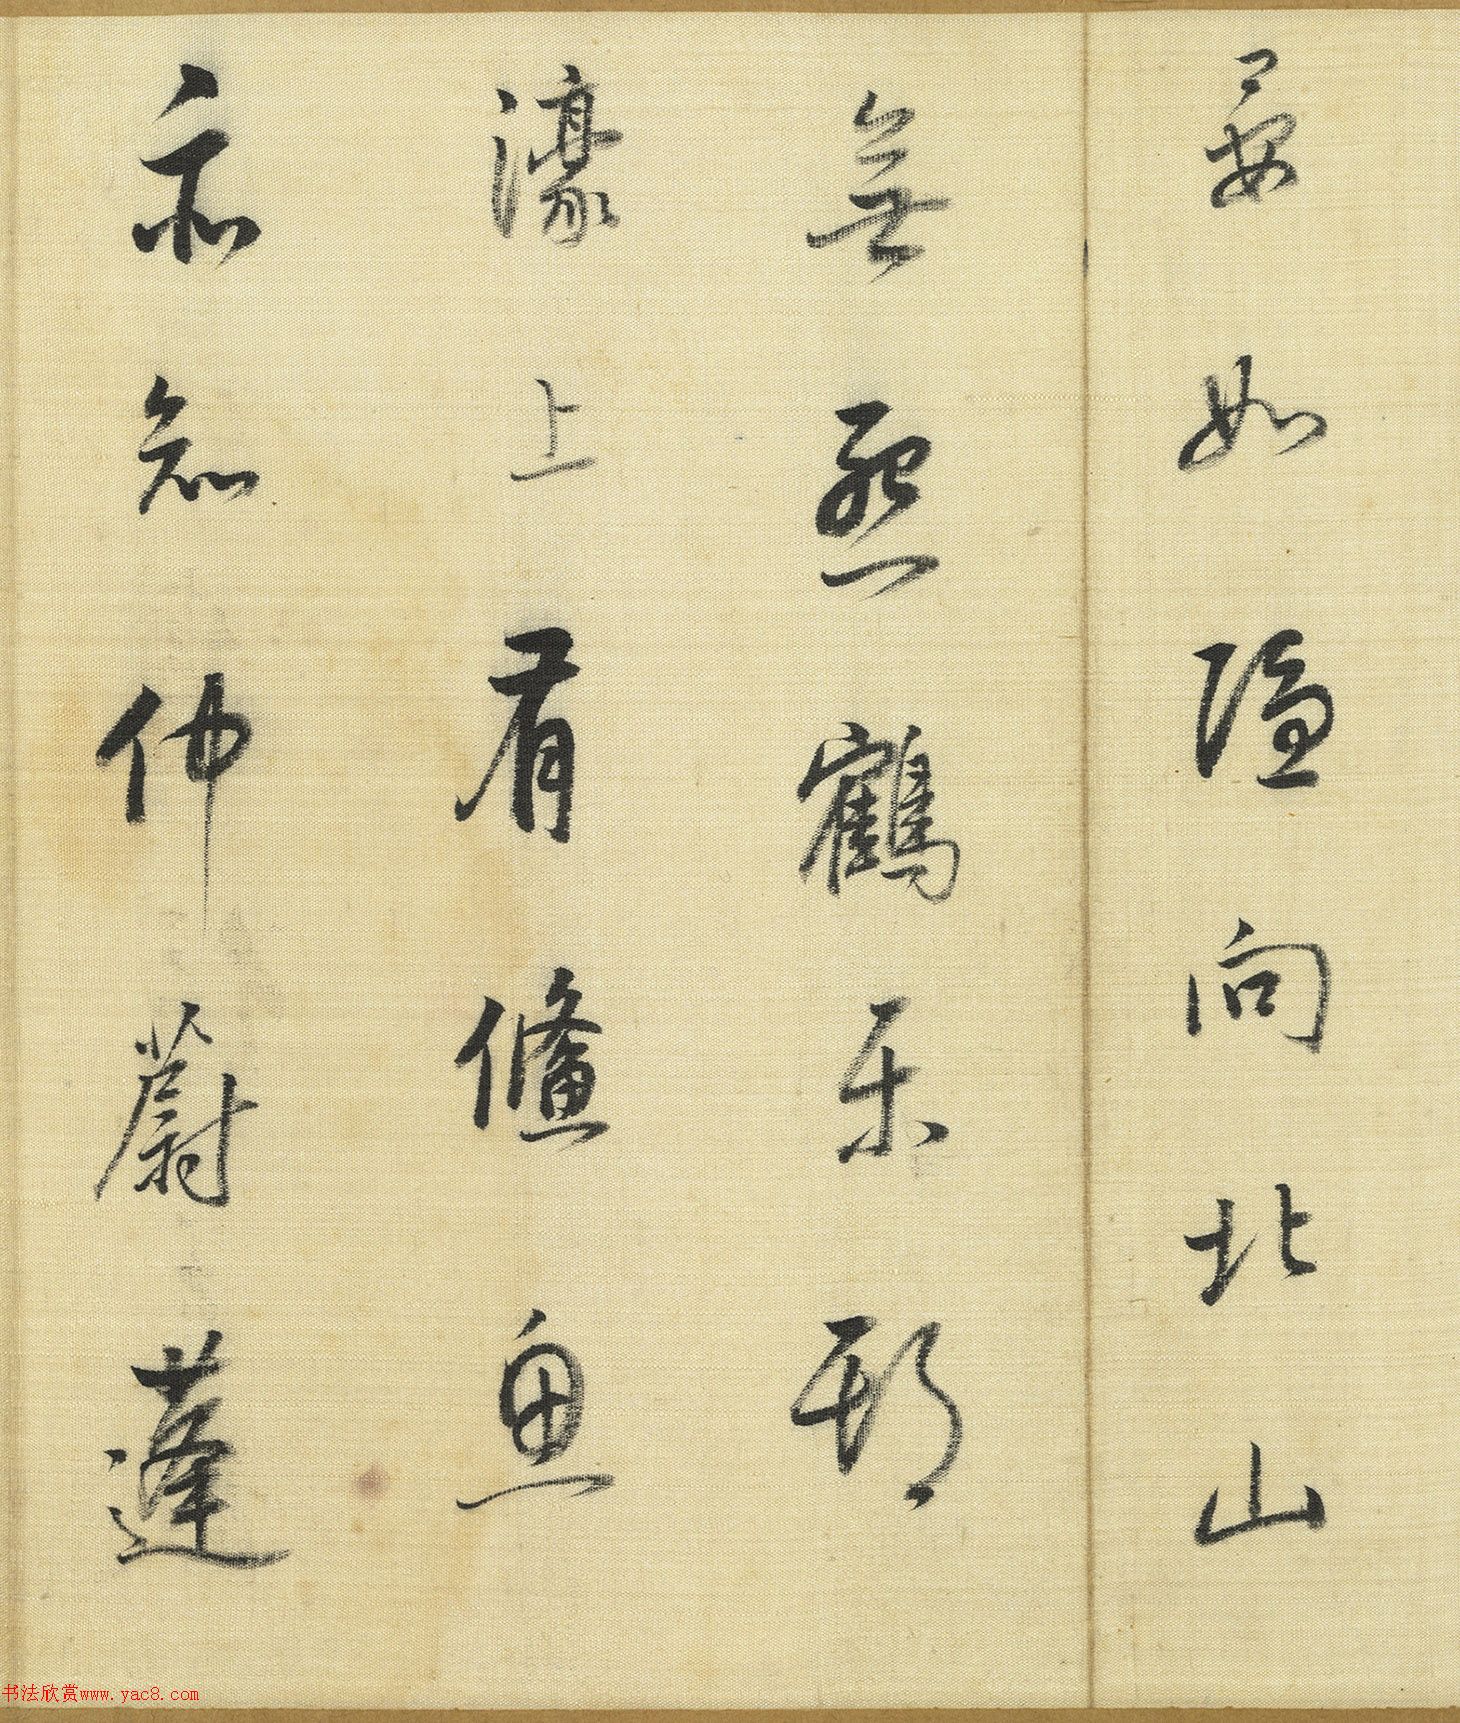 晏如隱向北山
無怨鶴樂邪
濠上有鯈魚
亦知仲蔚蓬
书法欣赏www.yac8.com